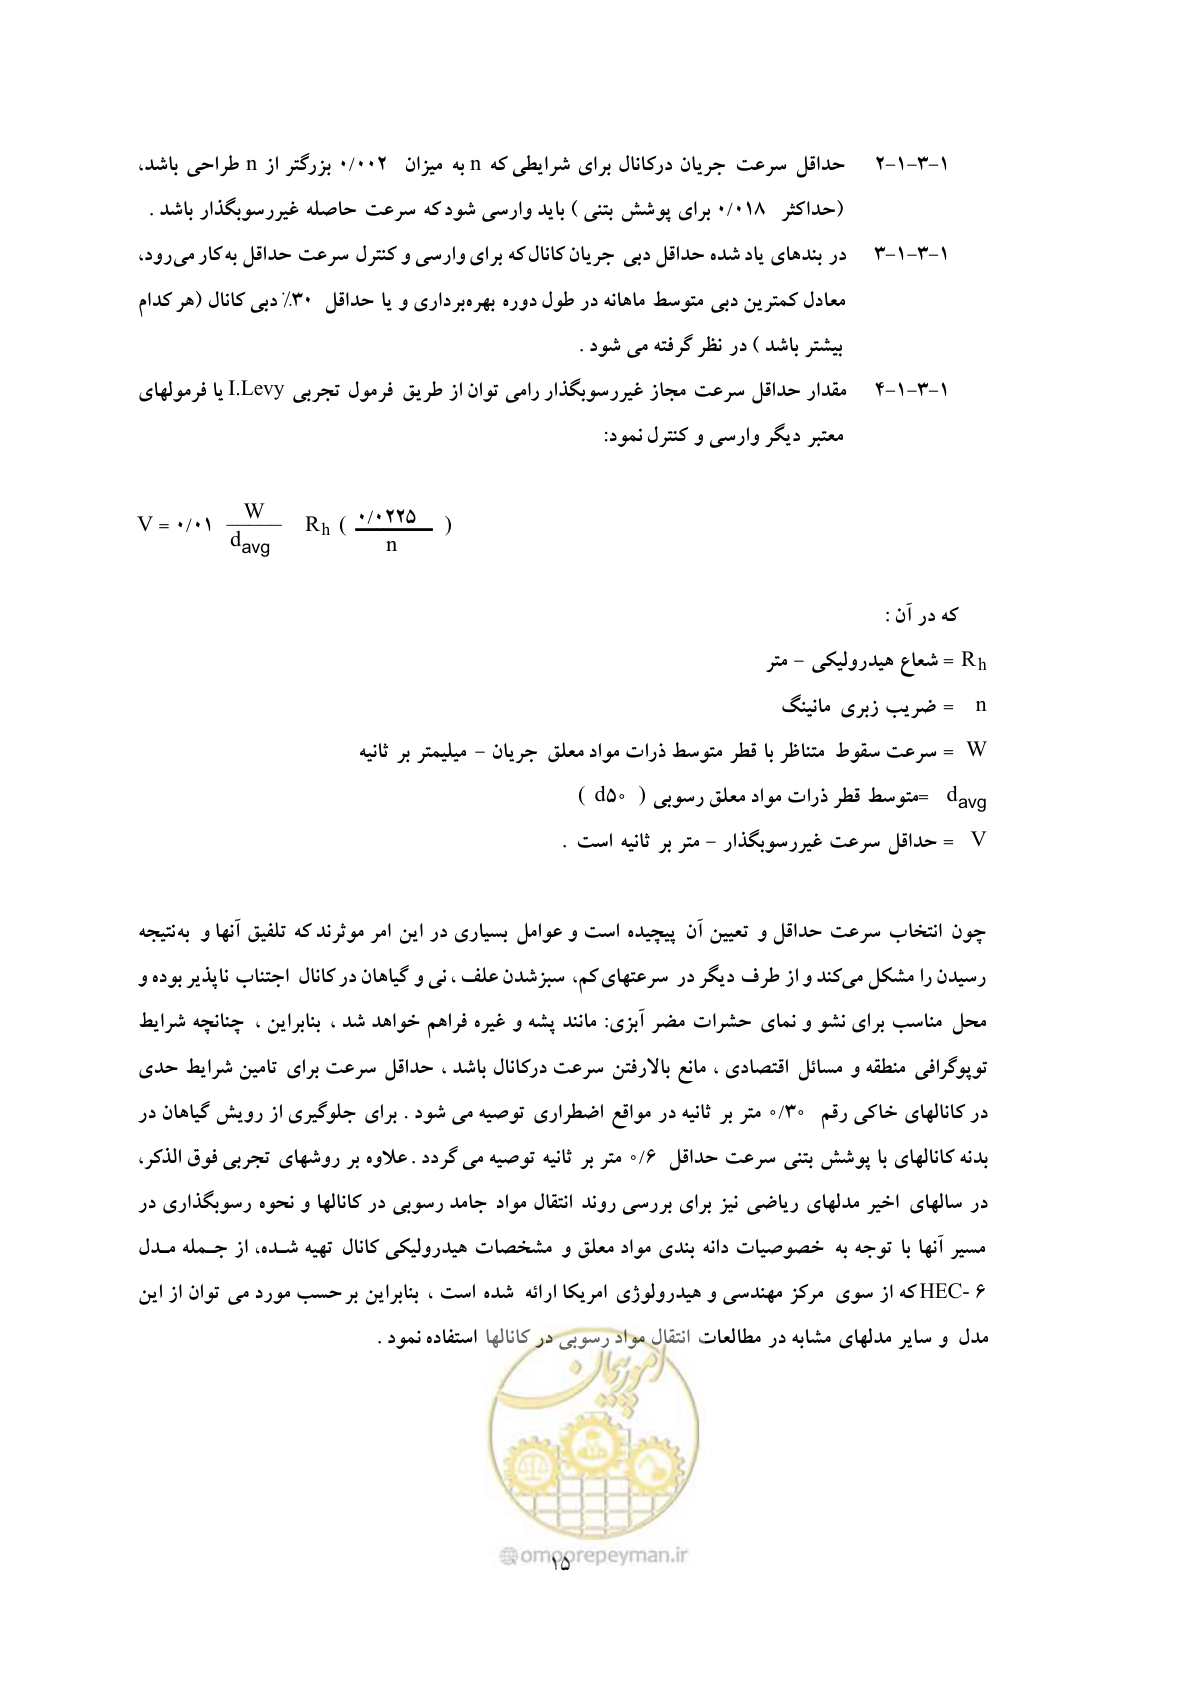 ۱-۳-۱-۲ حداقل سرعت جریان درکانال برای شرایطی که n به میزان ۰/۰۰۲ بزرگتر از n طراحی باشد،
(حداکثر ۰/۰۱۸ برای پوشش بتنی ) باید وارسی شود که سرعت حاصله غیررسوبگذار باشد .
۱-۳-۱-۳ در بندهای یاد شده حداقل دبی جریان کانال که برای وارسی و کنترل سرعت حداقل به‌کار می‌رود،
معادل کمترین دبی متوسط ماهانه در طول دوره بهره‌برداری و یا حداقل ۳۰٪ دبی کانال (هر کدام
بیشتر باشد ) در نظر گرفته می شود .
۱-۳-۱-۴ مقدار حداقل سرعت مجاز غیررسوبگذار رامی توان از طریق فرمول تجربی I.Levy یا فرمولهای
معتبر دیگر وارسی و کنترل نمود:
V = ۰/۰۱ W / d_avg R_h ( ۰/۰۲۲۵ / n )
که در آن :
R_h = شعاع هیدرولیکی – متر
n = ضریب زبری مانینگ
W = سرعت سقوط متناظر با قطر متوسط ذرات مواد معلق جریان – میلیمتر بر ثانیه
d_avg =متوسط قطر ذرات مواد معلق رسوبی ( d۵۰ )
V = حداقل سرعت غیررسوبگذار – متر بر ثانیه است .
چون انتخاب سرعت حداقل و تعیین آن پیچیده است و عوامل بسیاری در این امر موثرند که تلفیق آنها و به‌نتیجه
رسیدن را مشکل می‌کند و از طرف دیگر در سرعتهای کم، سبزشدن علف ، نی و گیاهان در کانال اجتناب ناپذیر بوده و
محل مناسب برای نشو و نمای حشرات مضر آبزی: مانند پشه و غیره فراهم خواهد شد ، بنابراین ، چنانچه شرایط
توپوگرافی منطقه و مسائل اقتصادی ، مانع بالارفتن سرعت درکانال باشد ، حداقل سرعت برای تامین شرایط حدی
در کانالهای خاکی رقم ۰/۳۰ متر بر ثانیه در مواقع اضطراری توصیه می شود . برای جلوگیری از رویش گیاهان در
بدنه کانالهای با پوشش بتنی سرعت حداقل ۰/۶ متر بر ثانیه توصیه می گردد . علاوه بر روشهای تجربی فوق الذکر،
در سالهای اخیر مدلهای ریاضی نیز برای بررسی روند انتقال مواد جامد رسوبی در کانالها و نحوه رسوبگذاری در
مسیر آنها با توجه به خصوصیات دانه بندی مواد معلق و مشخصات هیدرولیکی کانال تهیه شـده، از جـمله مـدل
HEC- ۶ که از سوی مرکز مهندسی و هیدرولوژی امریکا ارائه شده است ، بنابراین بر حسب مورد می توان از این
مدل و سایر مدلهای مشابه در مطالعات انتقال مواد رسوبی در کانالها استفاده نمود .
امور پیمان
@omoorepeyman.ir
۱۵